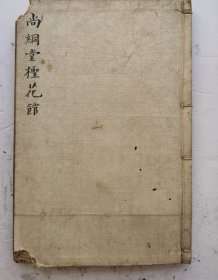 尚絅堂檉花館